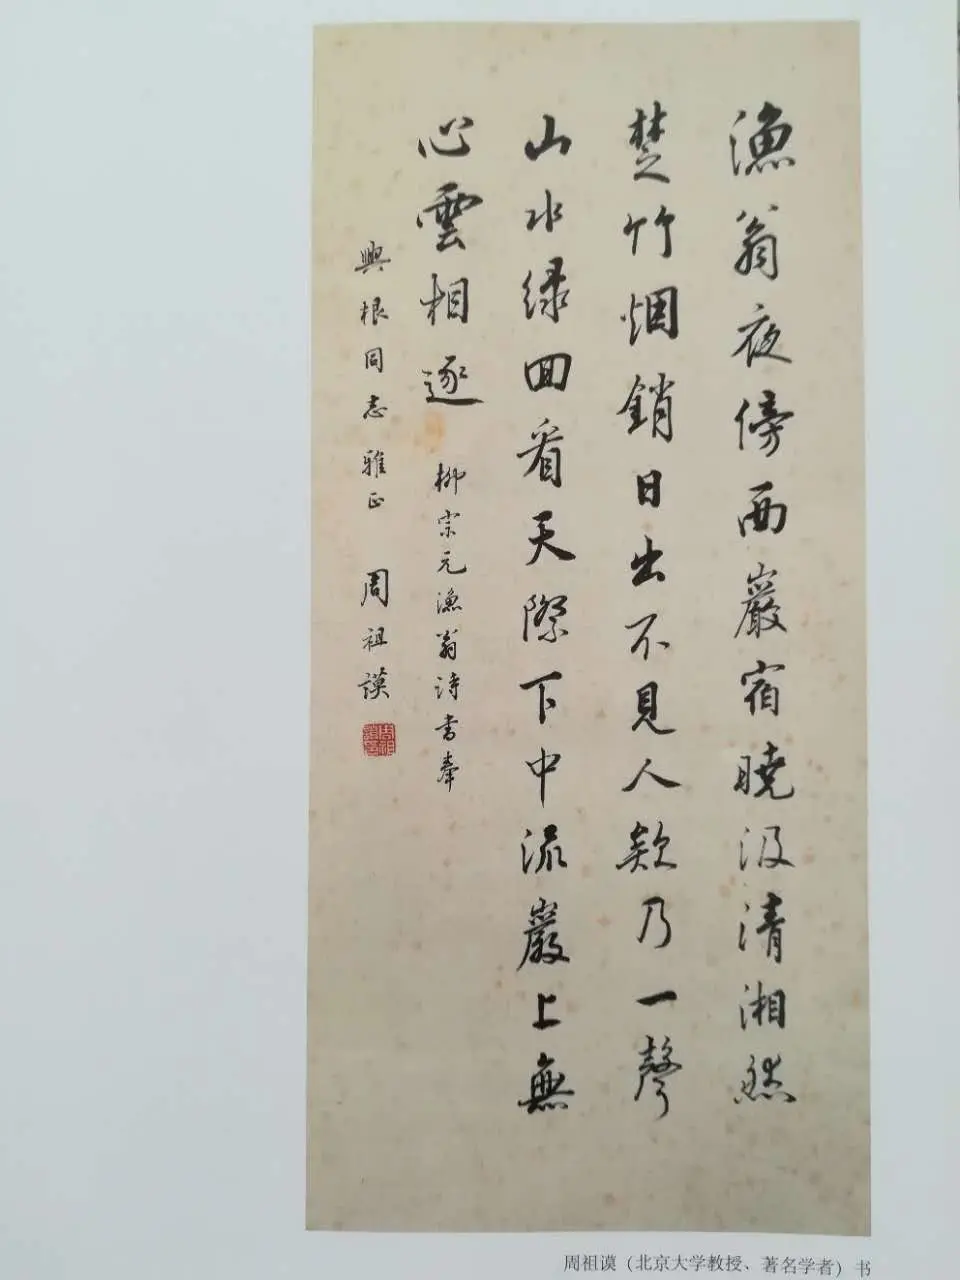 漁翁夜傍西巖宿曉汲清湘然
楚竹烟銷日出不見人欸乃一聲
山水緑回看天際下中流巖上無
心雲相逐
柳宗元漁翁詩書奉
興根同志雅正
周祖謨
周祖謨（北京大学教授、著名学者）书